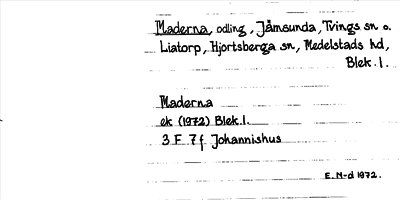 Maderna, odling, Jämsunda, Tvings sn o.
Liatorp, Hjortsberga sn, Medelstads hd,
Blek.l.
Maderna
ek (1972) Blek.l.
3 F 7f Johannishus
E. N-d 1972.